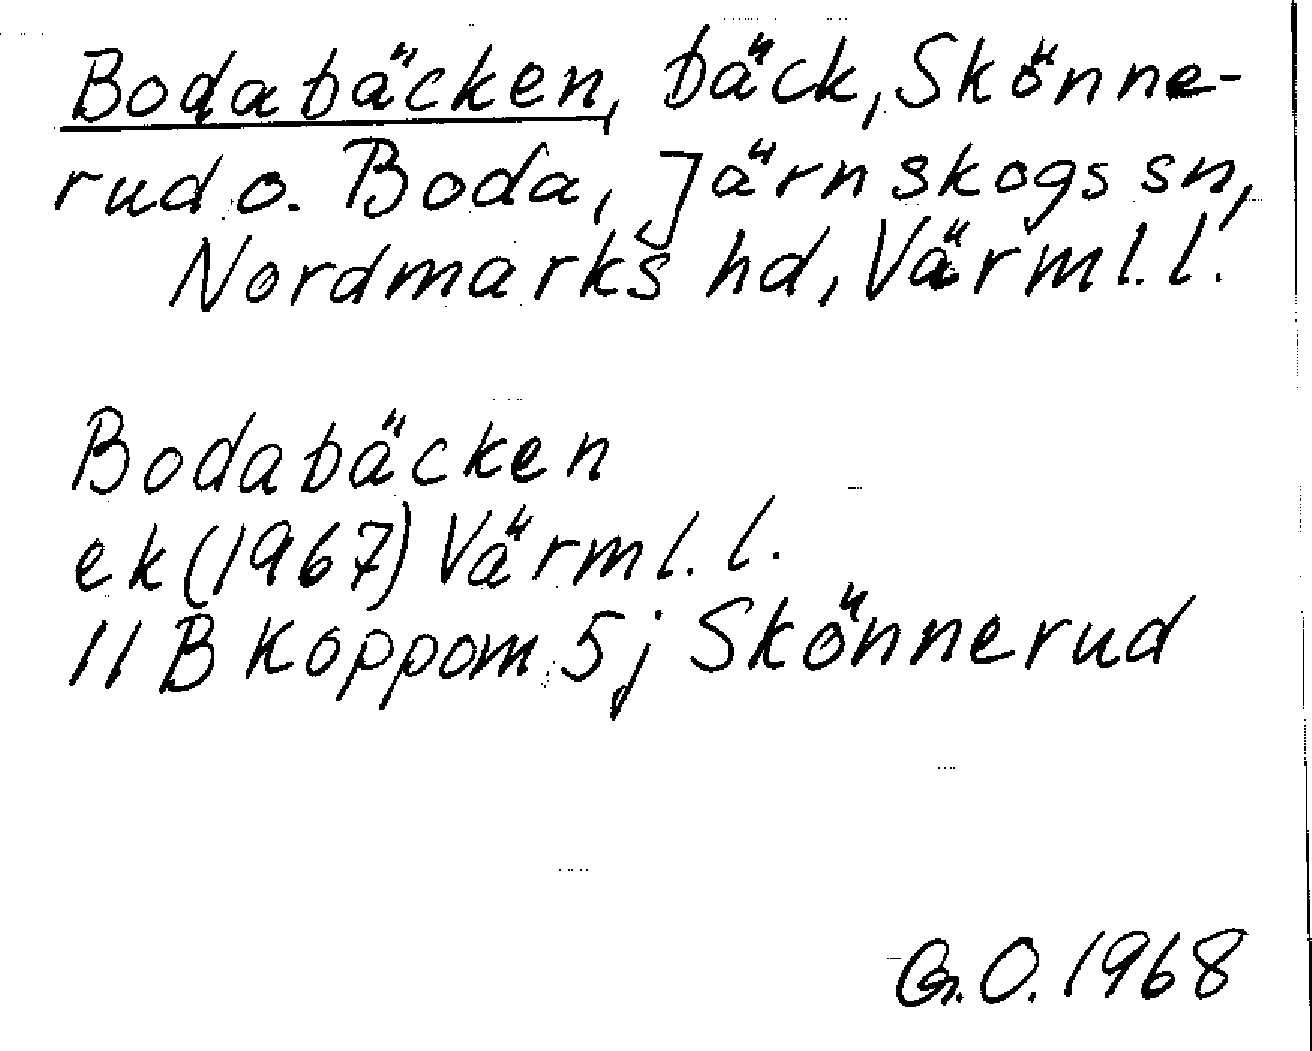 Bodabäcken, bäck, Skönne-
rud o. Boda, Järnskogs sn,
Nordmarks hd, Värml. l.
Bodabäcken
ek (1967) Värml. l.
11 B Koppom 5j Skönnerud
G.O. 1968